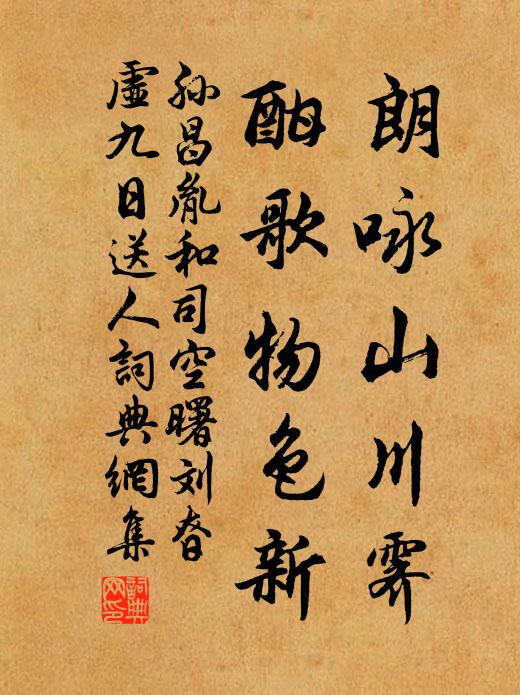 朗咏山川霁
酣歌物色新
孙昌胤和司空曙刘眘
虚九日送人詞典網集
詞典
网印